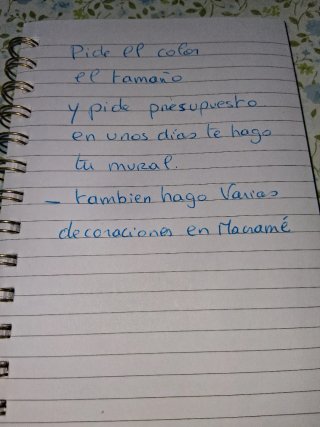 Pide el color
el tamaño
y pide presupuesto
en unos dias te hago
tu mural.
- tambien hago Varias
decoraciones en Macramé